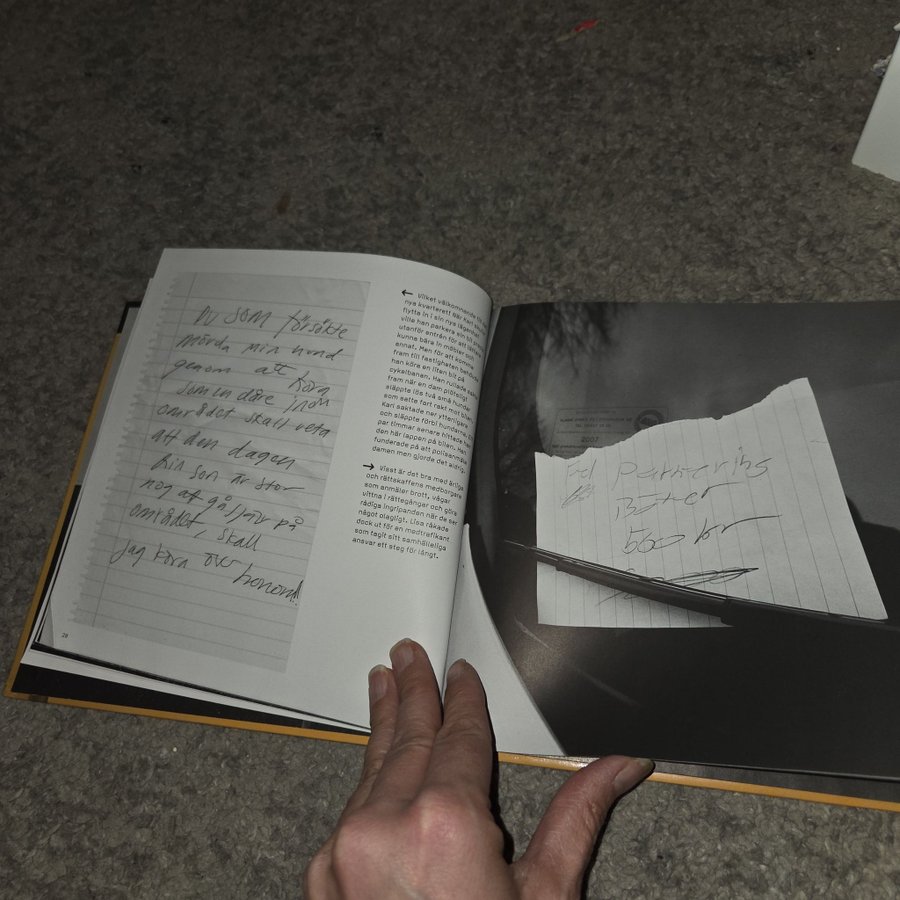 Du som försökte
mörda min hund
genom att köra
som en dåre inom
området skall veta
att den dagen
din son är stor
nog att gå själv på
området, skall
jag köra över
honom!
← Vilket välkomnande
nya kvarteret! När Karl
flytta in i sin nya lägenhet
ville han parkera sin bil
utanför entrén för att
kunna bära in möbler och
annat. Men för att komma
fram till fastigheten behövde
han köra en liten bit på
cykelbanan. Han rullade
fram när en dam plötsligt
släppte lös två små hundar
som satte fart rakt mot bilen.
Karl saktade ner ytterligare
och släppte förbi hundarna. Ett
par timmar senare hittade han
den här lappen på bilen. Han
funderade på att polisanmäla
damen men gjorde det aldrig.
→ Visst är det bra med ärliga
och rättskaffens medborgare
som anmäler brott, vågar
vittna i rättegångar och göra
rådiga ingripanden när de ser
något olagligt. Lisa råkade
dock ut för en medtrafikant
som tagit sitt samhälleliga
ansvar ett steg för långt.
28
2007
Fel Parkerings
Böter
500 kr